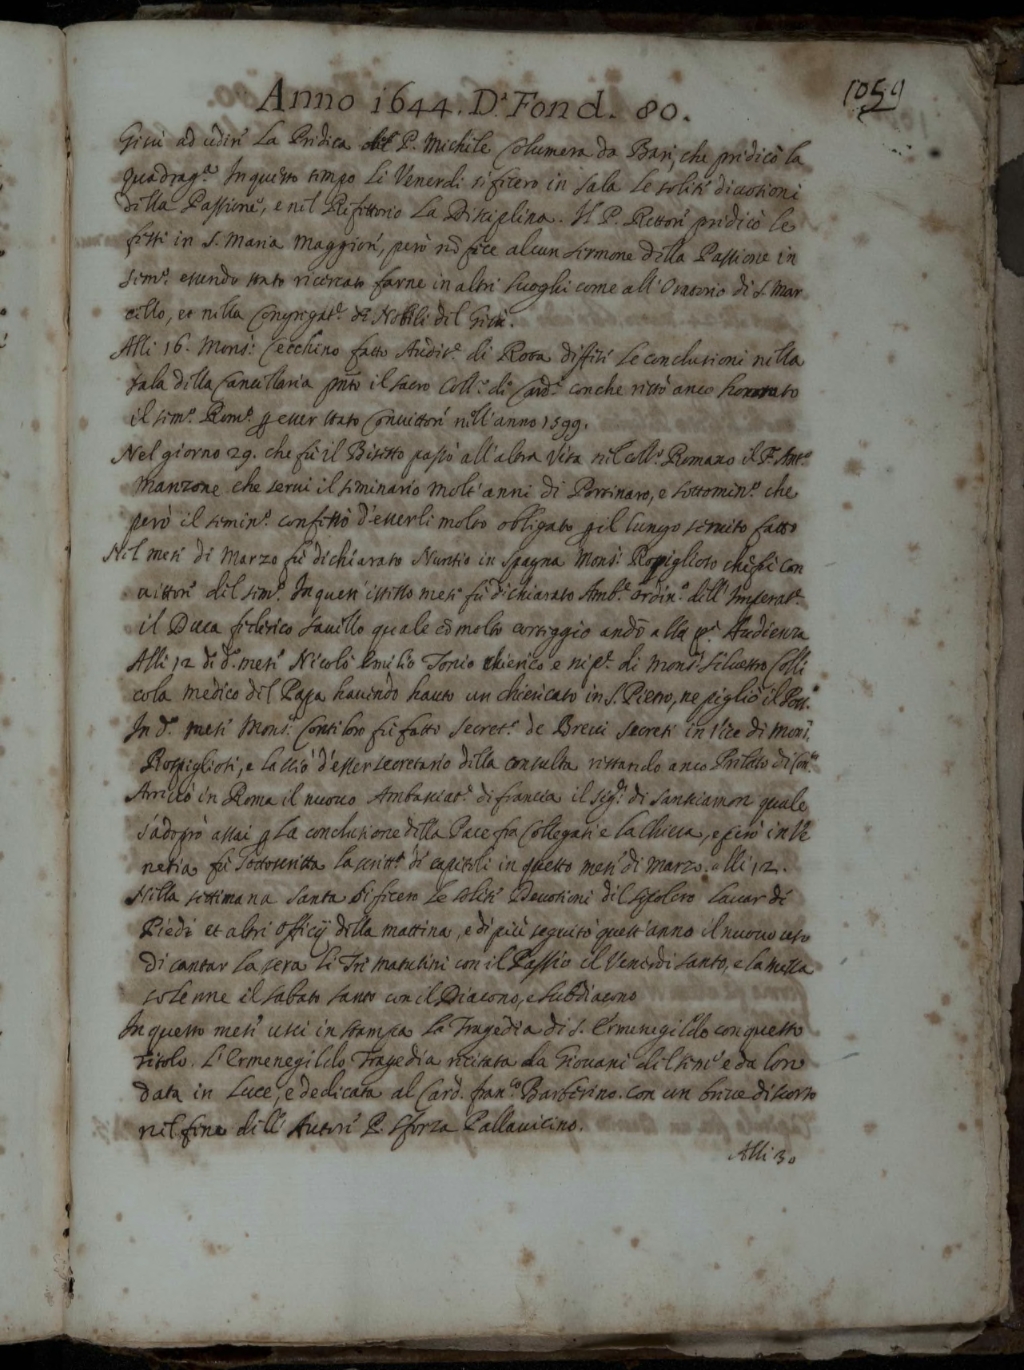 Anno 1644. Dª Fond. 80.
1059
Giesù ad udire La Predica del P. Michele Columera da Bari, che predicò la
quadragª. In questo tempo li Venerdi si fecero in sala le solite divotioni
della Passione, e nel Refettorio La Disciplina. Il P. Rettore predicò le
feste in S. Maria Maggiore, però nõ fece alcun sermone della Passione in
semº. essendo stato ricercato farne in altri luoghi come all'Oratorio di S. Mar
cello, et nella Congregatº. de Nobili del Giesù.
Alli 16. Monsʳ. Cecchino fatto Auditʳ. di Rota diffese le conclusioni nella
sala della Cancellaria pñte il sacro Collº. de Cardˡⁱ. con che restò anco honorato
il semº. Romº. ꝑ esser stato Convittore nell'anno 1599.
Nel giorno 29. che fù il Bisesto passò all'altra Vita nel collº. Romano il F. Antº.
Manzone che servi il seminario molt'anni di Portinaro, e sottominº. che
però il seminº. confessò d'esserli molto obligato ꝑ il lungo servitio fatto
Nel mese di Marzo fù dichiarato Nuntio in Spagna Monsʳ. Rospiglioso che fù con
vittore del semº. In quest'istesso mese fù dichiarato Ambʳ. ordinº. dell'Imperatʳ.
il Duca federico Savello quale cõ molto corteggio andò alla pª. Audienza
Alli 12 di dº. mese Nicolò Emilio Tonio chierico e nipᵉ. di Monsʳ. Silvestro Colli
cola medico del Papa havendo hauto un chiericato in S. Pietro, ne pigliò il Poss.
In dº. mese Monsʳ. Contiloro fù fatto Secretº. de Brevi Secreti in vece di Monsʳ.
Rospigliosi, e lasciò d'esser secretario della consulta restando anco Prelato di Con.
Arrivò in Roma il nuovo Ambasciatʳ. di francia il sigʳ. di Santiamon quale
s'adoprò assai ꝑ La conclusione della Pace fra Collegati e la Chiesa, e però in Ve
netia fù sottoscritta la scrittª. di capitoli in questo mese di Marzo. alli 12.
Nella settimana Santa si fecero le solite Devotioni del sepolcro lavar de
Piedi et altri Officij della mattina, e di più seguitò quest'anno il nuovo uso
di cantar la sera li Tre matutini con il Passio il Venerdi santo, e la messa
solenne il sabato santo con il Diacono, e Subdiacono
In questo mese usci in stampa La Tragedia di S. Ermenegildo con questo
titolo. L'Ermenegildo Tragedia recitata da Giovani del semº e da loro
data in Luce, e dedicata al Card. franº. Barberino. con un breve discorso
nel fine dell'Autore P. Sforza Pallavicino.
Alli 30